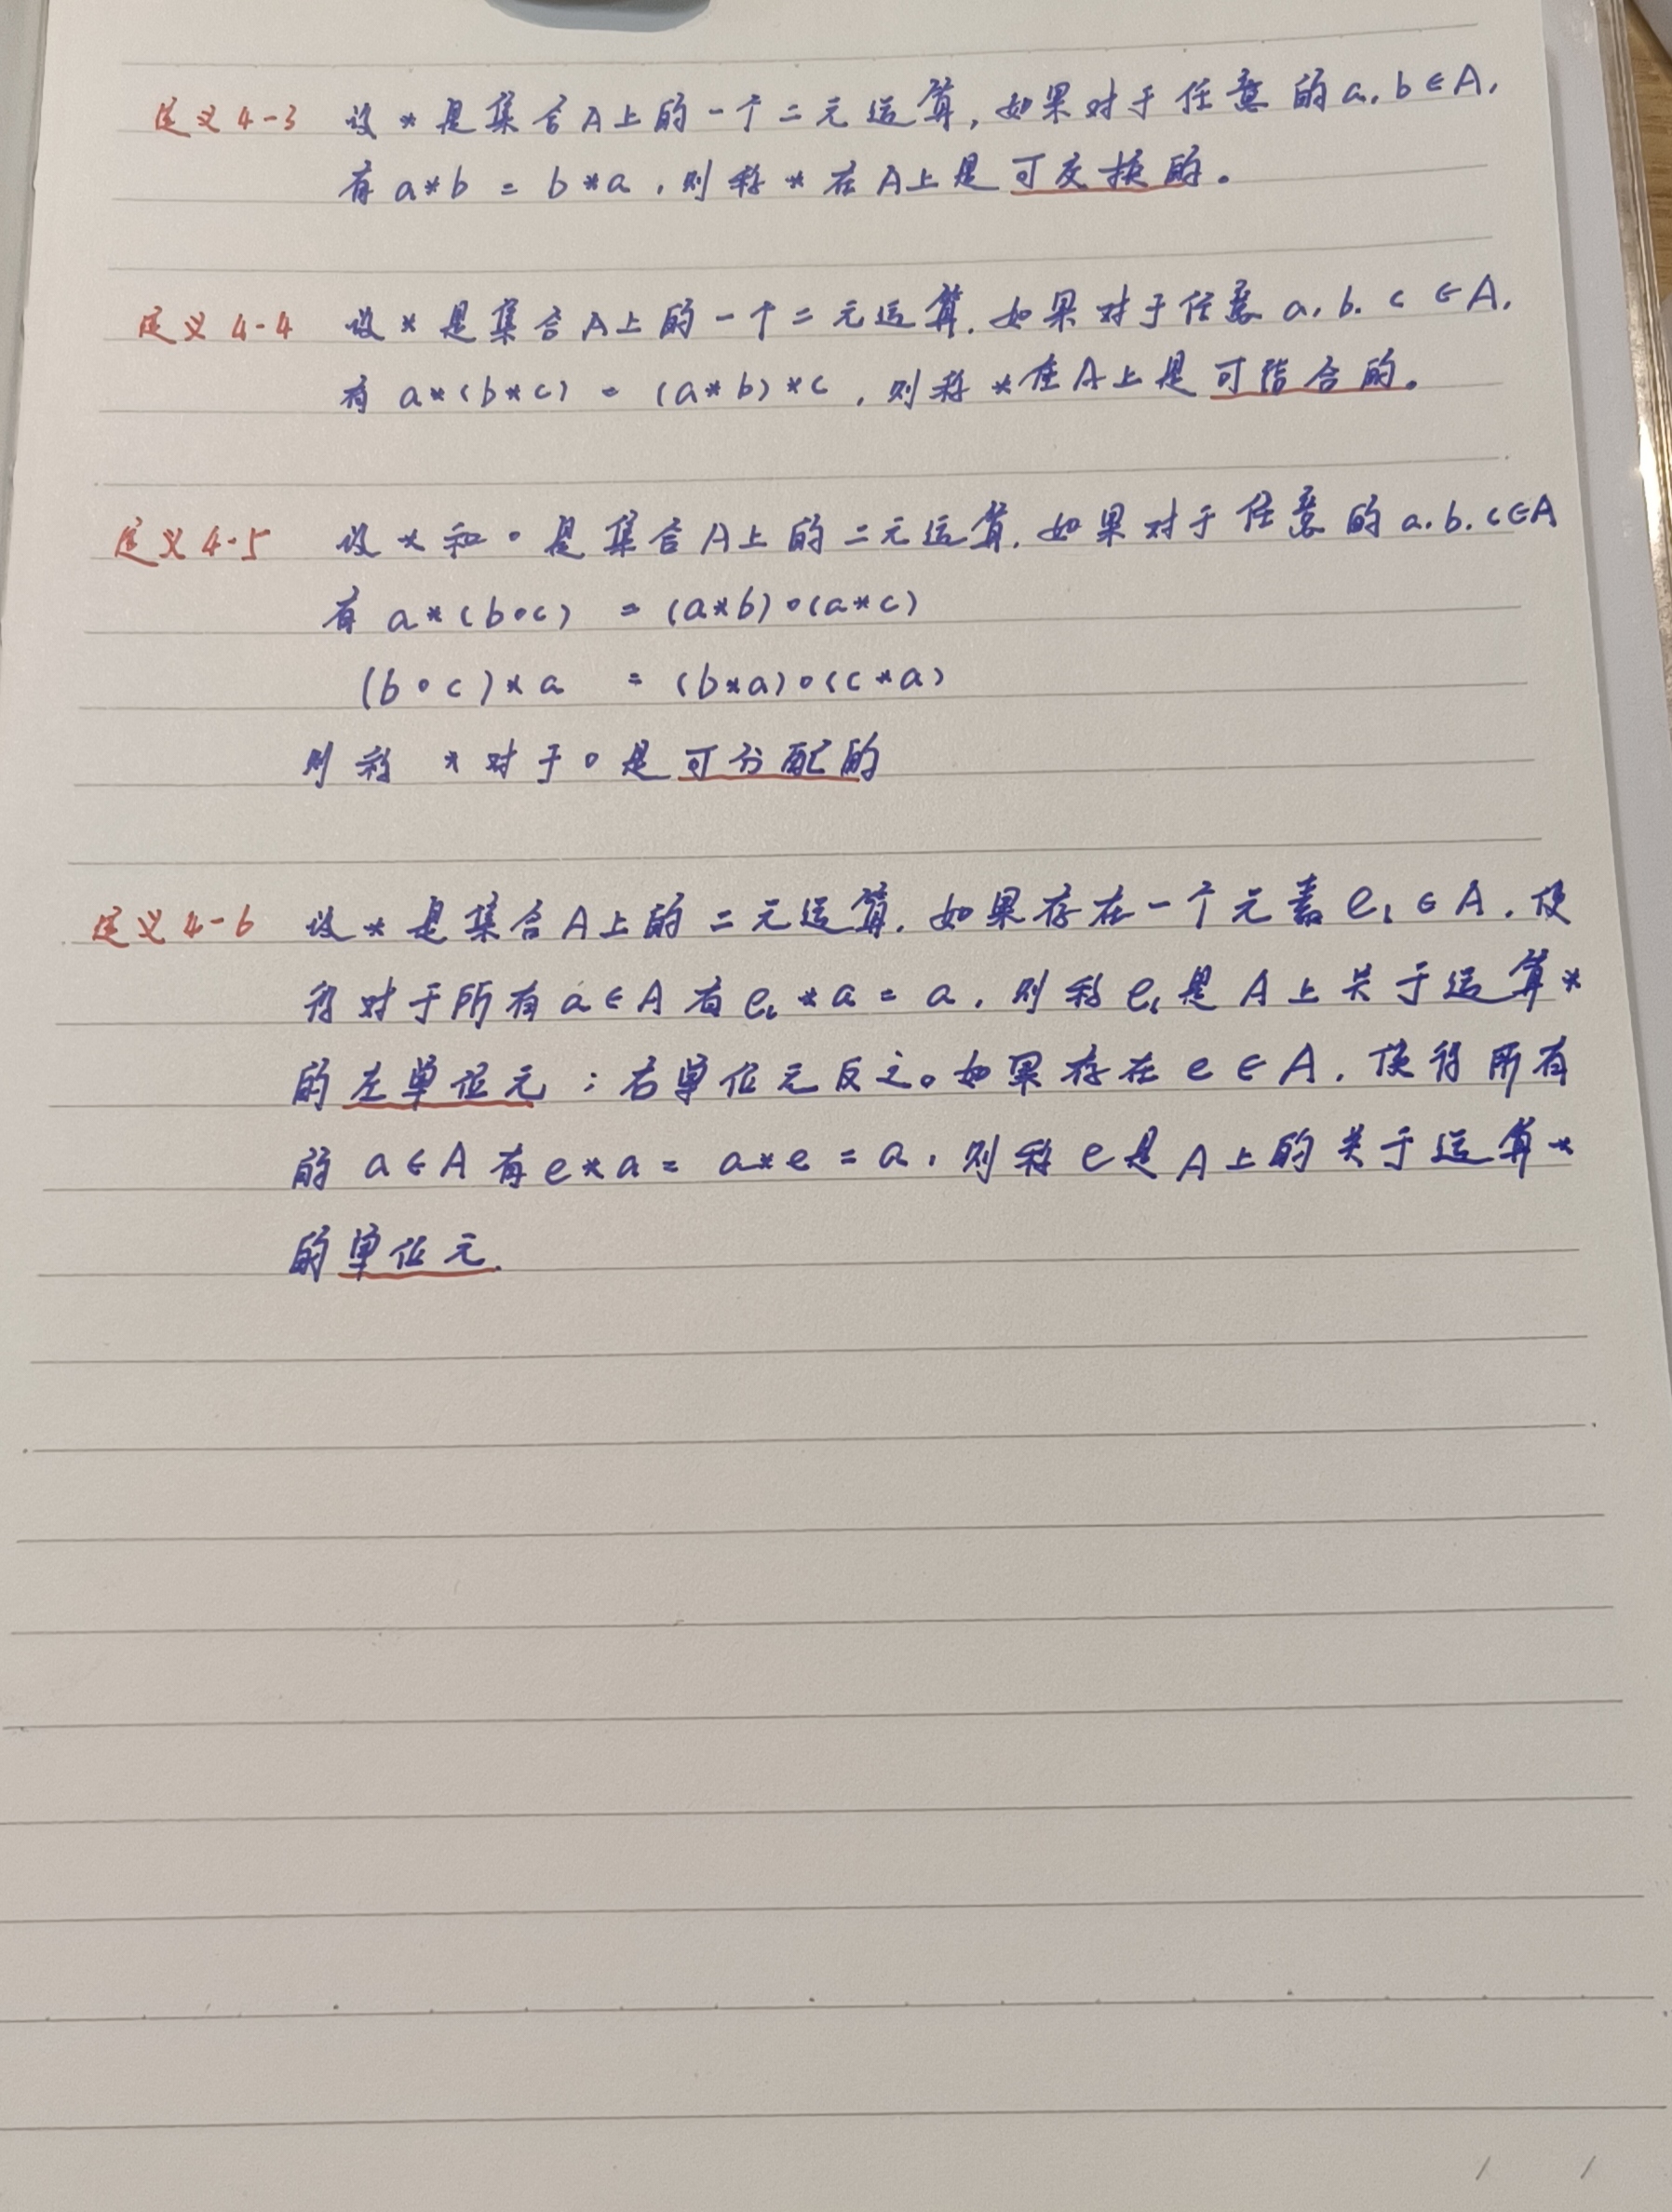 定义4-3 设*是集合A上的一个二元运算,如果对于任意的a,b∈A,
有a*b = b*a,则称*在A上是可交换的。
定义4-4 设*是集合A上的一个二元运算,如果对于任意a,b,c∈A,
有a*(b*c) = (a*b)*c,则称*在A上是可结合的。
定义4-5 设*和∘是集合A上的二元运算,如果对于任意的a,b,c∈A
有a*(b∘c) = (a*b)∘(a*c)
(b∘c)*a = (b*a)∘(c*a)
则称*对于∘是可分配的
定义4-6 设*是集合A上的二元运算,如果存在一个元素eₗ∈A,使
得对于所有a∈A有eₗ*a=a,则称eₗ是A上关于运算*
的左单位元;右单位元反之。如果存在e∈A,使得所有
的a∈A有e*a=a*e=a,则称e是A上的关于运算*
的单位元.